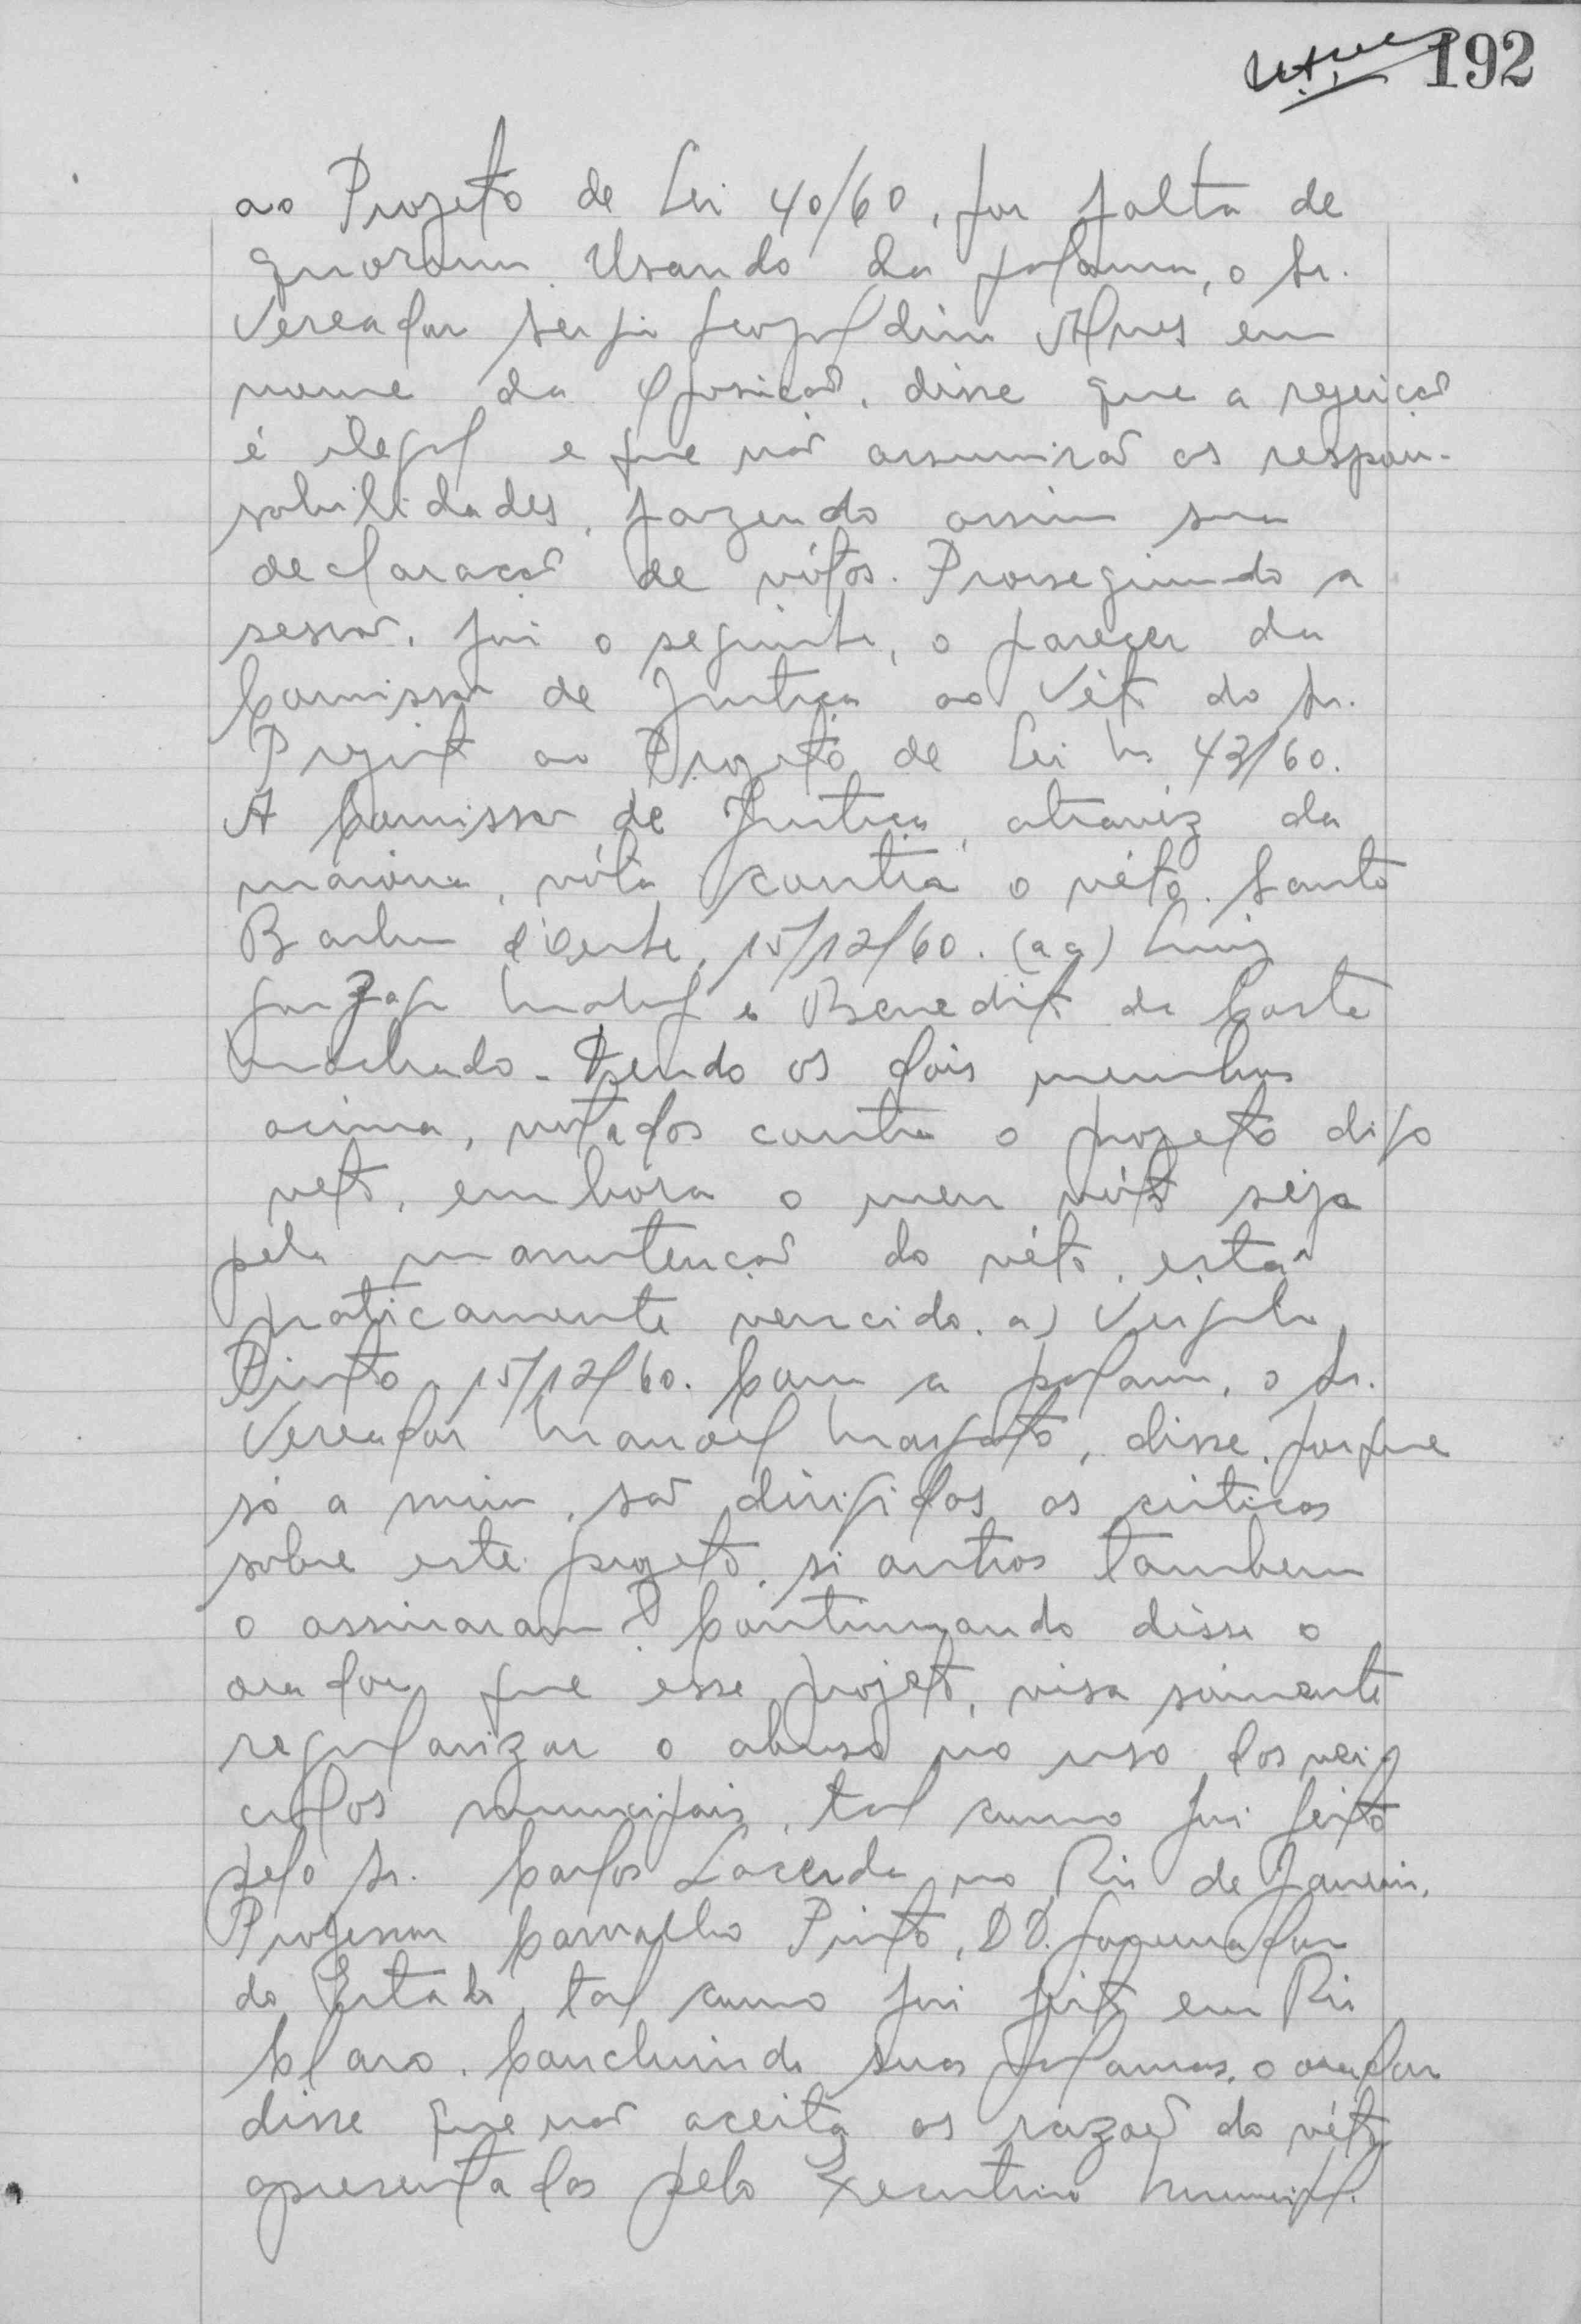 192
ao Projeto de Lei 40/60, por falta de
quorum. Usando da palavra, o Sr.
Vereador Sergio Leopoldino Alves em
nome da Oposição, disse que a rejeição
é ilegal e que não assumirão as respon-
sabilidades, fazendo assim sua
declaração de vótos. Prosseguindo a
sessão, foi o seguinte, o parecer da
Comissão de Justiça ao Véto do Sr.
Prefeito ao Projeto de Lei nº 43/60.
A Comissão de Justiça, atravéz da
maioria, vóta contra o véto. Santa
Barbara d'Oeste, 15/12/60. (aa) Luiz
Gonzaga Maluf e Benedito da Costa
Machado. Tendo os dois membros
acima, votados contra o projeto digo
veto, embora o meu vóto seja
pela manutenção do véto, está
praticamente vencido. a) Vergilio
Pinto, 15/12/60. Com a palavra, o Sr.
Vereador Manoel Margato, disse, porque
só a mim, são dirigidas as criticas
sobre este projeto, si outros tambem
o assinaram? Continuando disse o
orador que esse projeto, visa sómente
regularizar o abuso no uso dos vei-
culos municipais, tal como foi feito
pelo Sr. Carlos Lacerda no Rio de Janeiro,
Professor Carvalho Pinto, DD. Governador
do Estado, tal como foi feito em Rio
Claro. Concluindo suas palavras, o orador
disse que não aceita as razões do véto
apresentadas pelo Executivo Municipal.